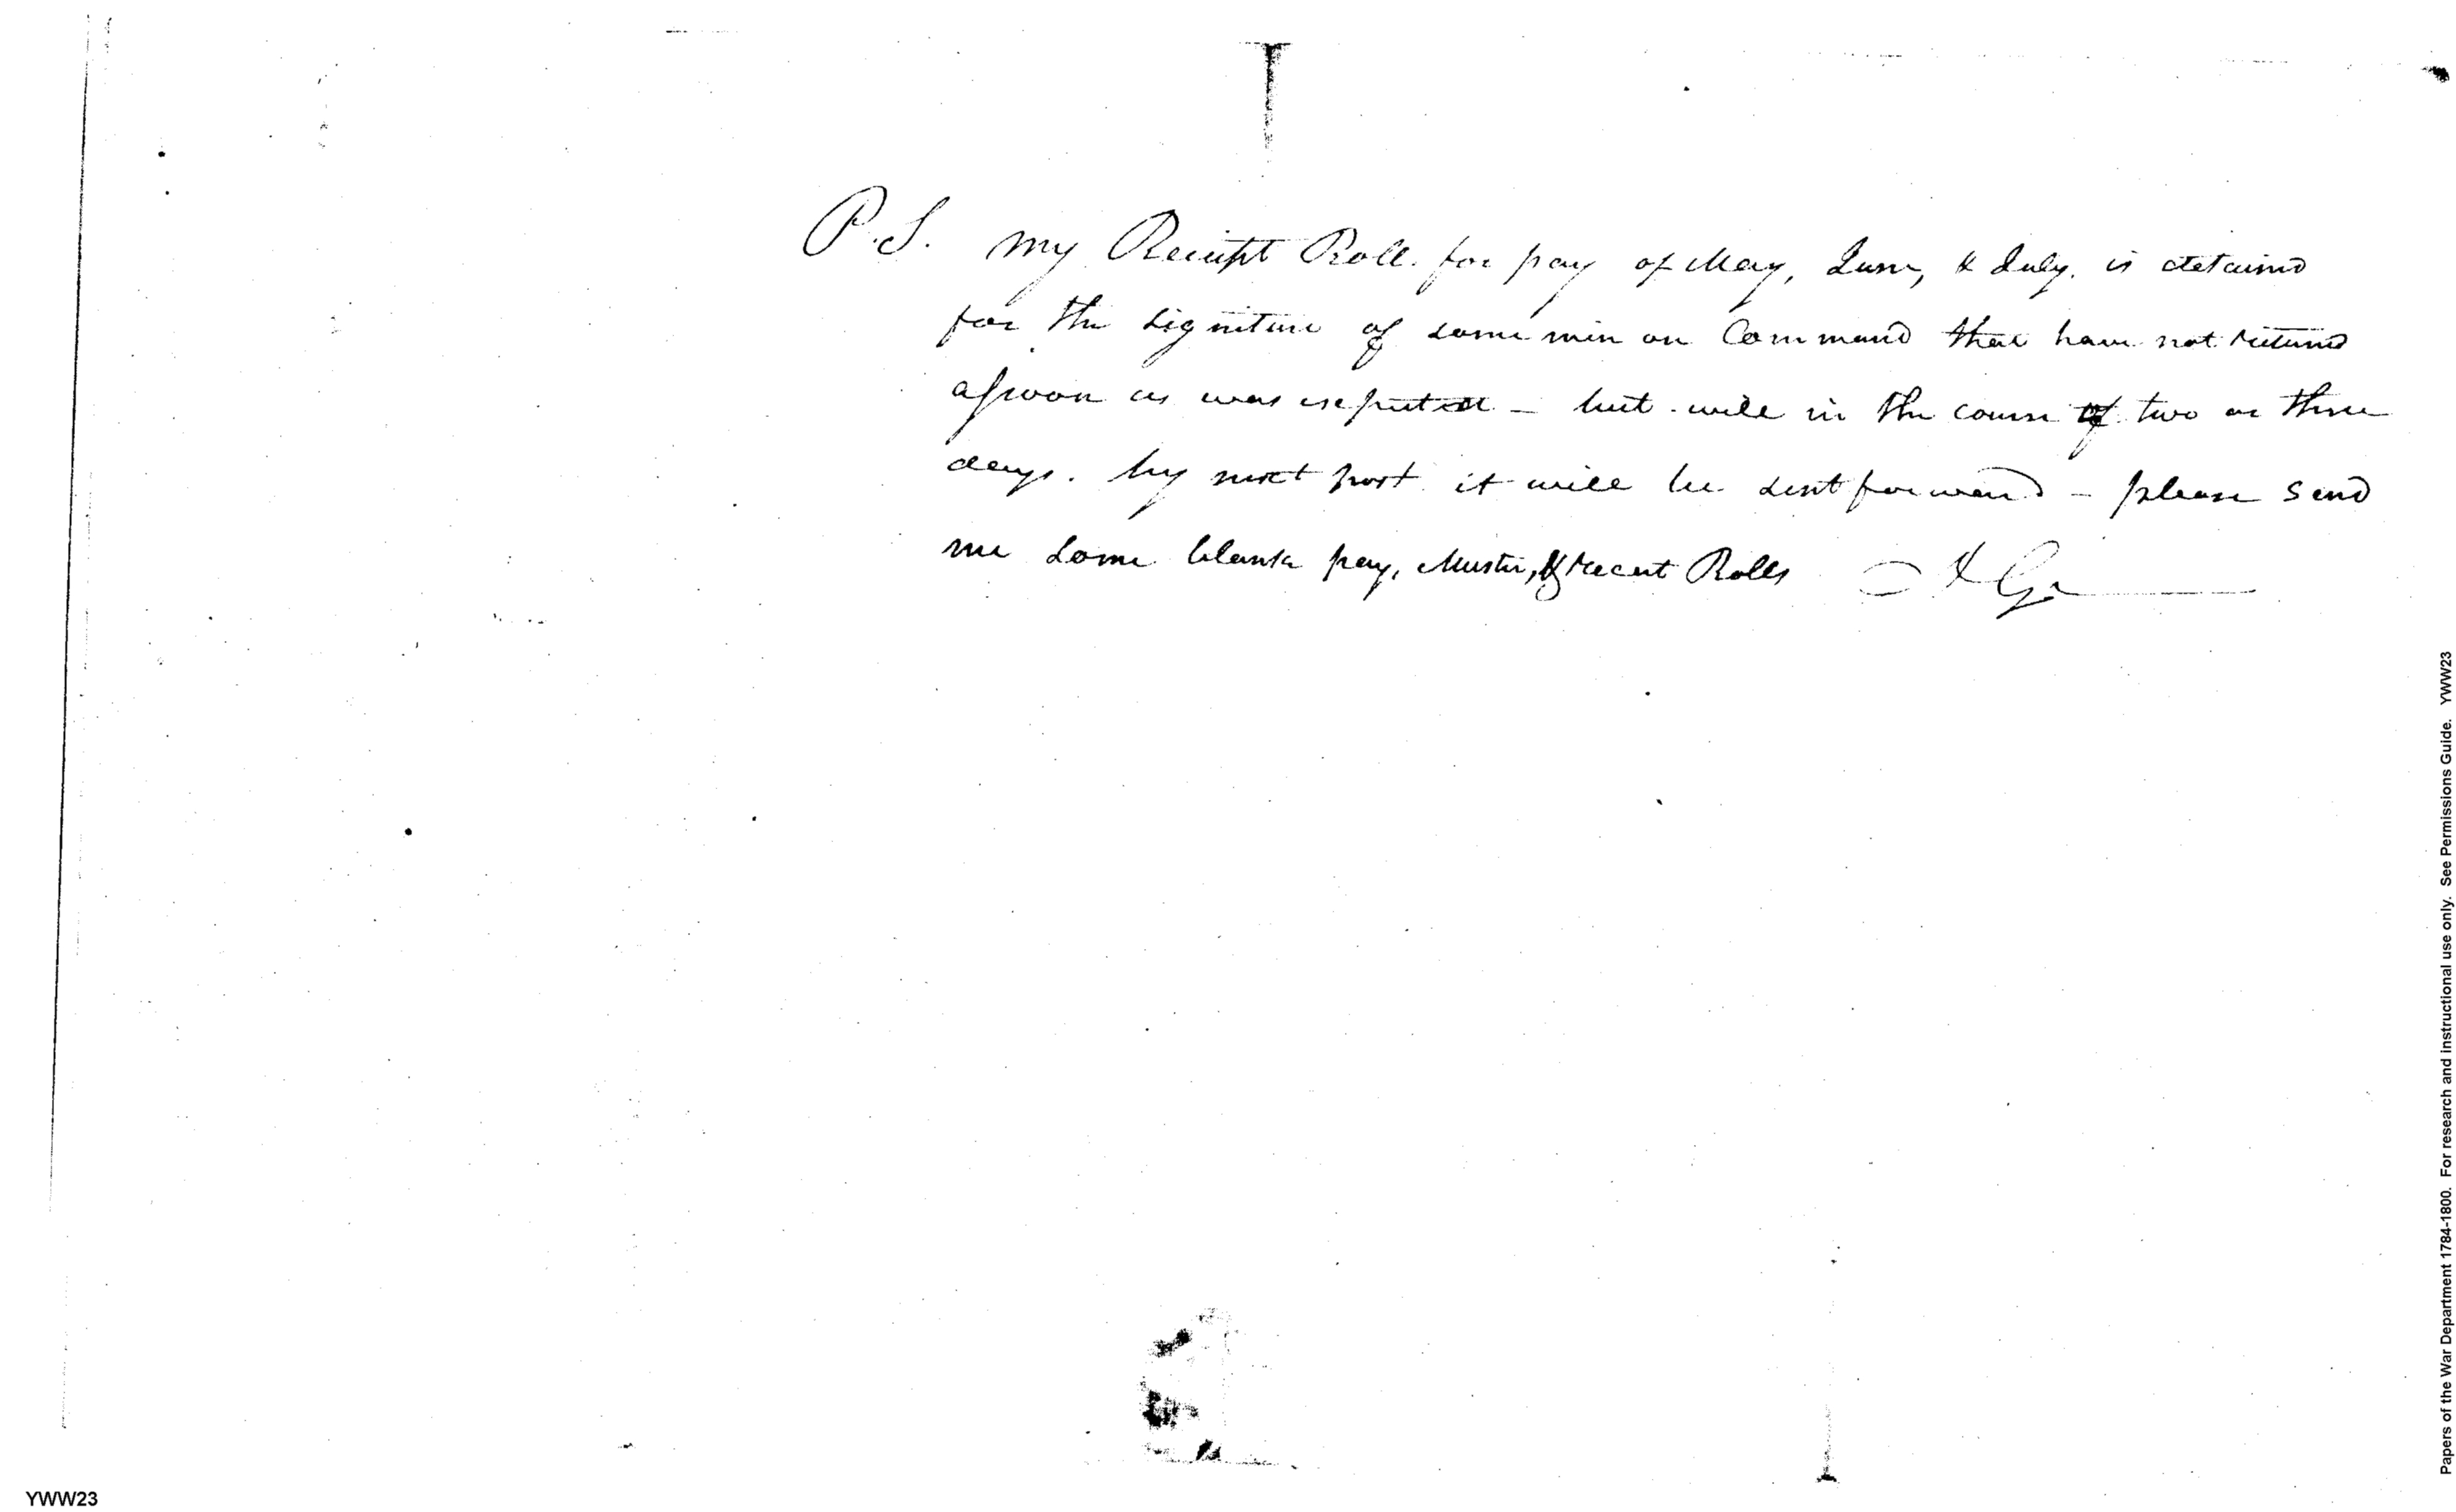 P.S. my Receipt Roll for pay of May, June, & July. is detained
for the signeture of some men on Command that have not returnd
assoon as was expected - but will in the course of two or three
days. by next post it will be sent forward - please send
me some blank pay, Muster, & receut Rolls
Papers of the War Department 1784-1800. For research and instructional use only. See Permissions Guide. YWW23
YWW23